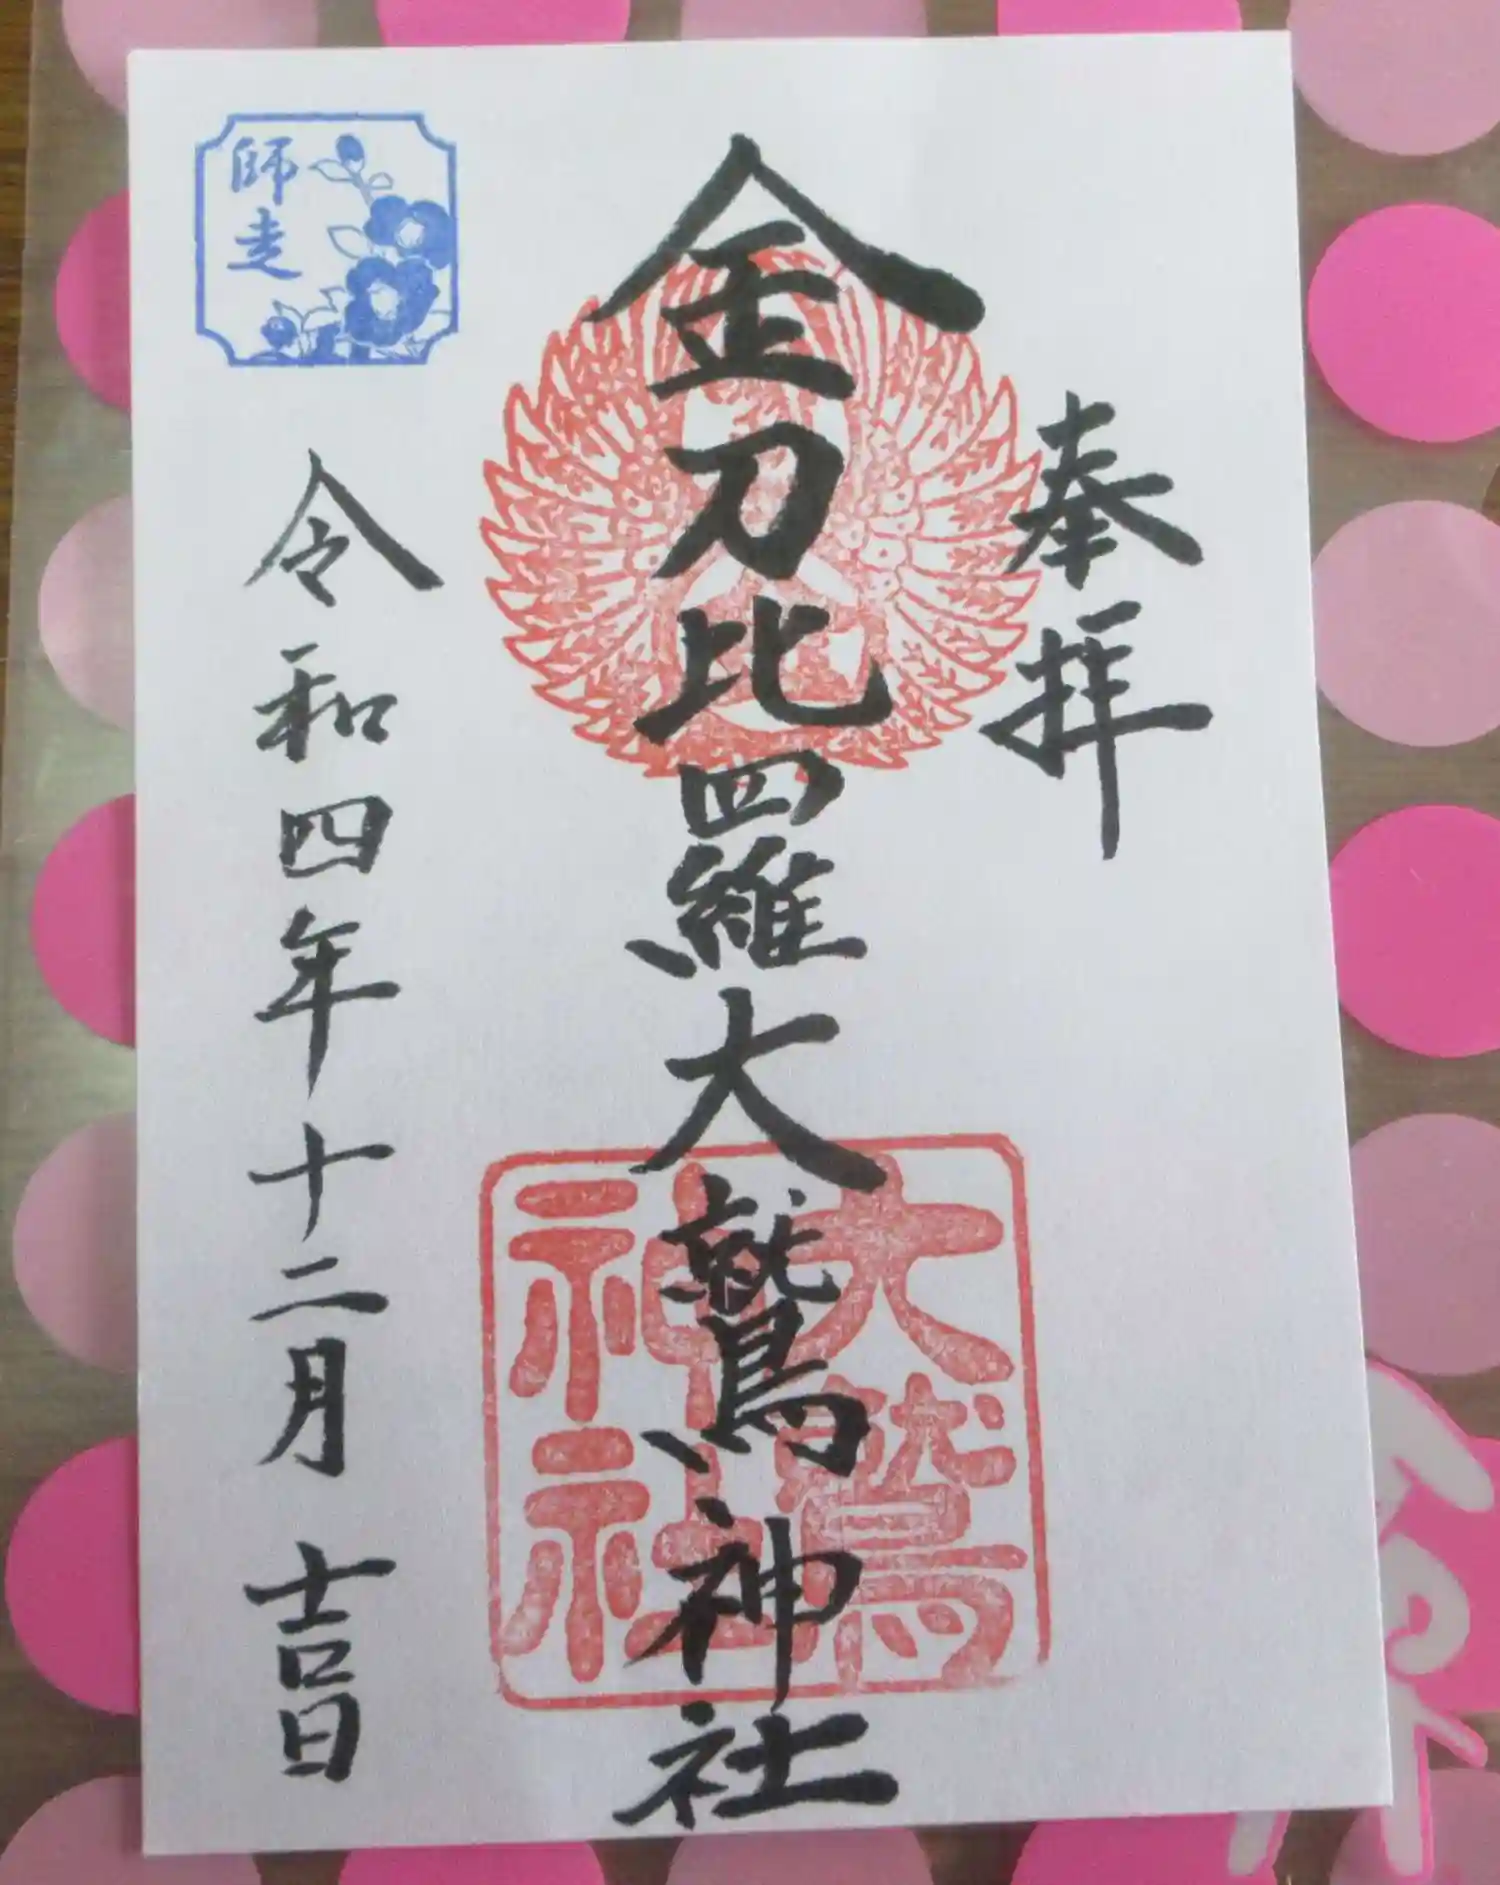 奉拝
金刀比羅大鷲神社
大鷲
神社
師走
令和四年十二月吉日